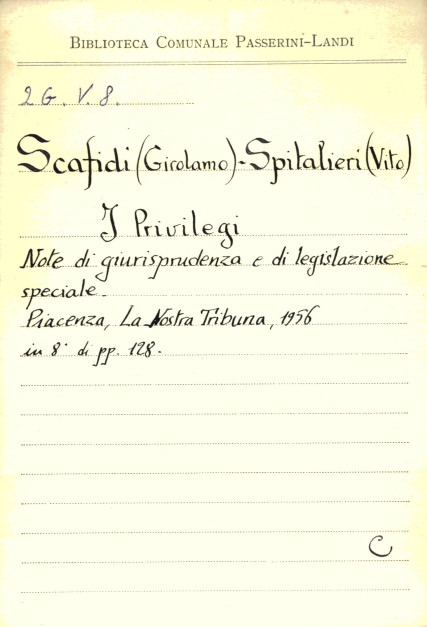 BIBLIOTECA COMUNALE PASSERINI-LANDI
2G. V. 8.
Scafidi (Girolamo) - Spitalieri (Vito)
I Privilegi
Note di giurisprudenza e di legislazione
speciale.
Piacenza, La Nostra Tribuna, 1956
in 8° di pp. 128.
C